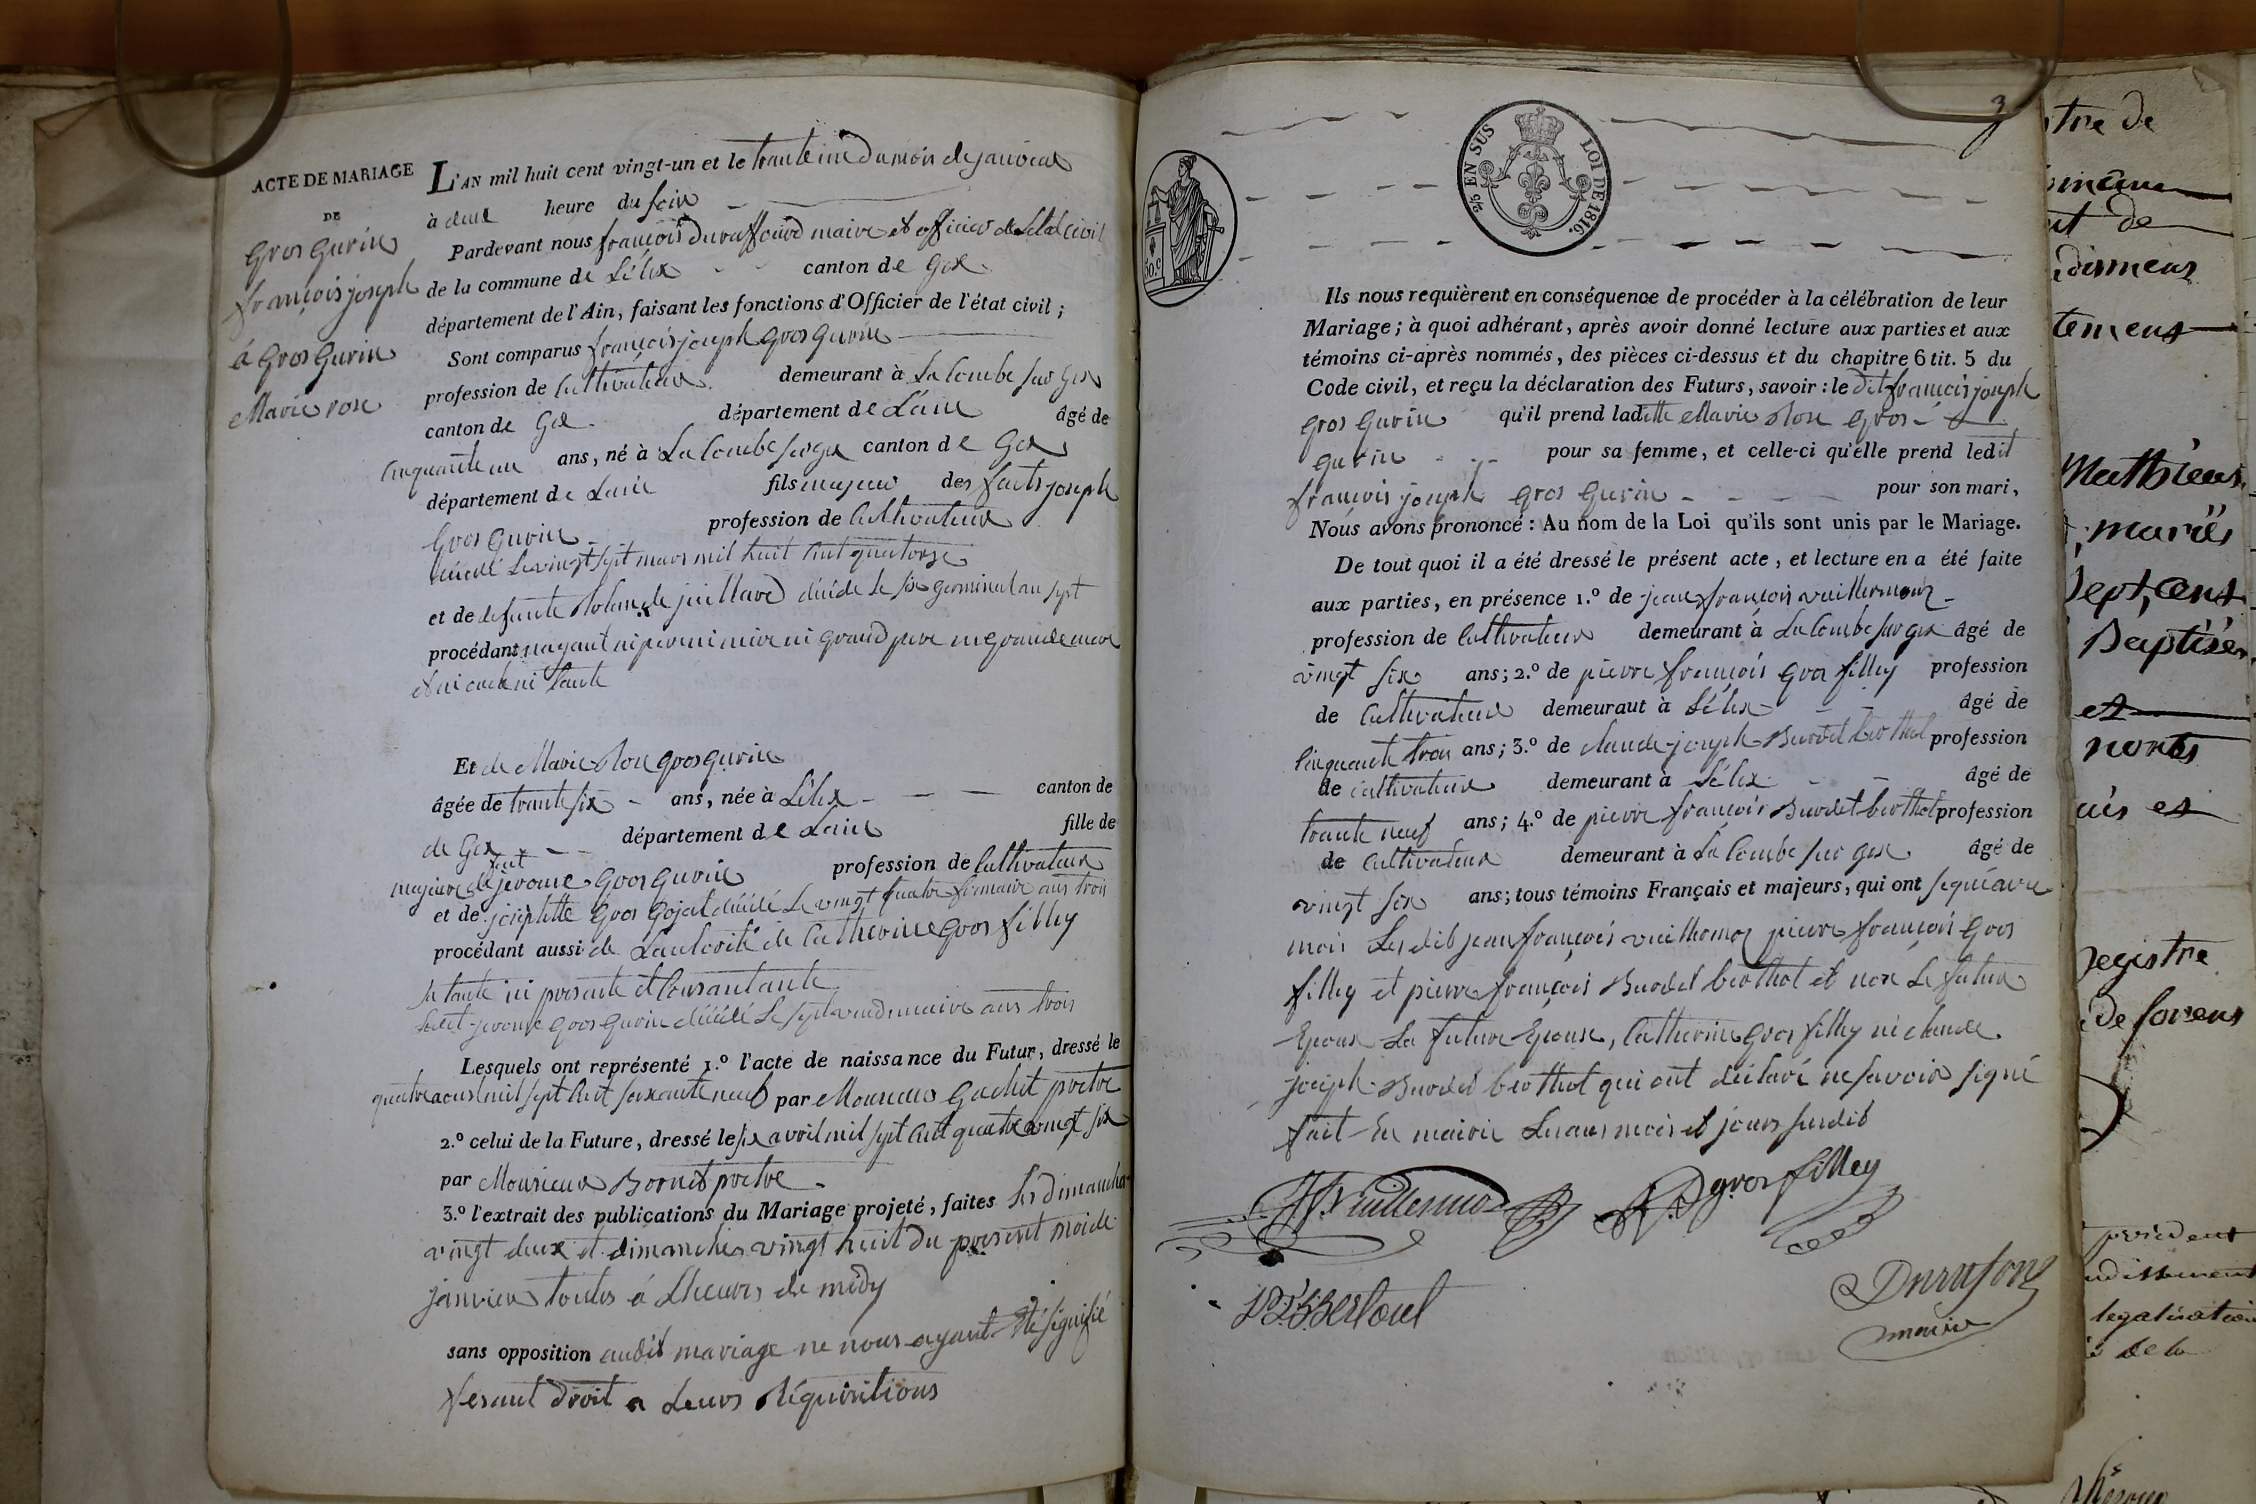 ACTE DE MARIAGE
DE
gros gurin
françois joseph
á gros gurin
Marie rose
L'AN mil huit cent vingt-un et le trante une du mois de janvier
à deux heure du soir
Pardevant nous françois Duraffourd maire et officier de Létat civil
de la commune de Lélex canton de Gex
département de l'Ain, faisant les fonctions d'Officier de l'état civil ;
Sont comparus françois joseph gros gurin
profession de Cultivateur demeurant à La Combe sur Gex
canton de Gex département de L'ain âgé de
Cinquante un ans, né à La Combe sur gex canton de Gex
département de Lain fils majeur des futs joseph
Gros Gurin profession de Cultivateur
décédé Le vingt sept mars mil huit Cent quatorze
et de defunte juillard décéde Le six germinal an sept
procédant nayant ni pere ni mere ni grand pere ni grande mere
et ni oncle ni tante
Et de Marie Rose gros gurin
âgée de trante six ans, née à Lélex canton de
de Gex département de Lain fille de
majeure de fut jérome gros gurin profession de Cultivateur
et de josephtte gros gojat décédé Le vingt quatre frimaire ans trois
procédant aussi de Lautorité de Catherine gros filley
sa tante ici presente et Consantante
Ledit jerome gros gurin décédé Le sept vendemiaire ans trois
Lesquels ont représenté 1.º l'acte de naissance du Futur, dressé le
quatre aoust mil sept Cent soixante neuf par Monsieur Gachet pretre
2.º celui de la Future, dressé le six avril mil sept Cent quatre vingt six
par Monsieur Bornet pretre
3.º l'extrait des publications du Mariage projeté, faites Les dimanches
vingt deux et dimanches vingt huit du present mois de
janvier toutes á Lheures de midy
sans opposition audit mariage ne nous ayant été signifié
fesant droit a Leurs Réquisitions
3
2/5 EN SUS LOI DE 1816.
50.c
Ils nous requièrent en conséquence de procéder à la célébration de leur
Mariage ; à quoi adhérant, après avoir donné lecture aux parties et aux
témoins ci-après nommés, des pièces ci-dessus et du chapitre 6 tit. 5 du
Code civil, et reçu la déclaration des Futurs, savoir : le dit françois joseph
gros Gurin qu'il prend ladette Marie Rose gros
gurin pour sa femme, et celle-ci qu'elle prend ledit
françois joseph gros Gurin pour son mari,
Nous avons prononcé : Au nom de la Loi qu'ils sont unis par le Mariage.
De tout quoi il a été dressé le présent acte, et lecture en a été faite
aux parties, en présence 1.º de jean françois vuillermoz
profession de Cultivateur demeurant à La Combe sur gex âgé de
vingt six ans ; 2.º de pierre françois gros filley profession
de Cultivateur demeuraut à Lélex âgé de
Cinquante trois ans ; 3.º de claude joseph Burdet berthot profession
de cultivateur demeurant à Lélex âgé de
trante neuf ans ; 4.º de pierre françois Burdet berthot profession
de Cultivateur demeurant à La Combe sur gex âgé de
vingt six ans ; tous témoins Français et majeurs, qui ont signé avec
moi Les dits jean françois vuillermoz pierre françois Gros
filley et pierre françois Burdet berthot et non Le futur
Epoux La future Epouse, Catherine gros filley ni claude
joseph Burdet berthot qui ont déclaré ne savoir signé
fait En mairie Les ans mois et jours susdit
JFVuillermoz
gros filley
Bertout
Durafour
maire
tre de
ut de
temens
Mathieu
mariés
Sept, cent
Baptisé
et
Registre
de forens
précédent
legalisation
de la